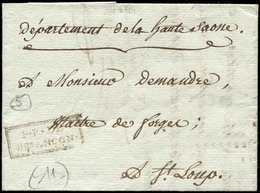 Département de la haute Saone.
A Monsieur Demandre,
Maitre de forges;
A St. Loup.
5